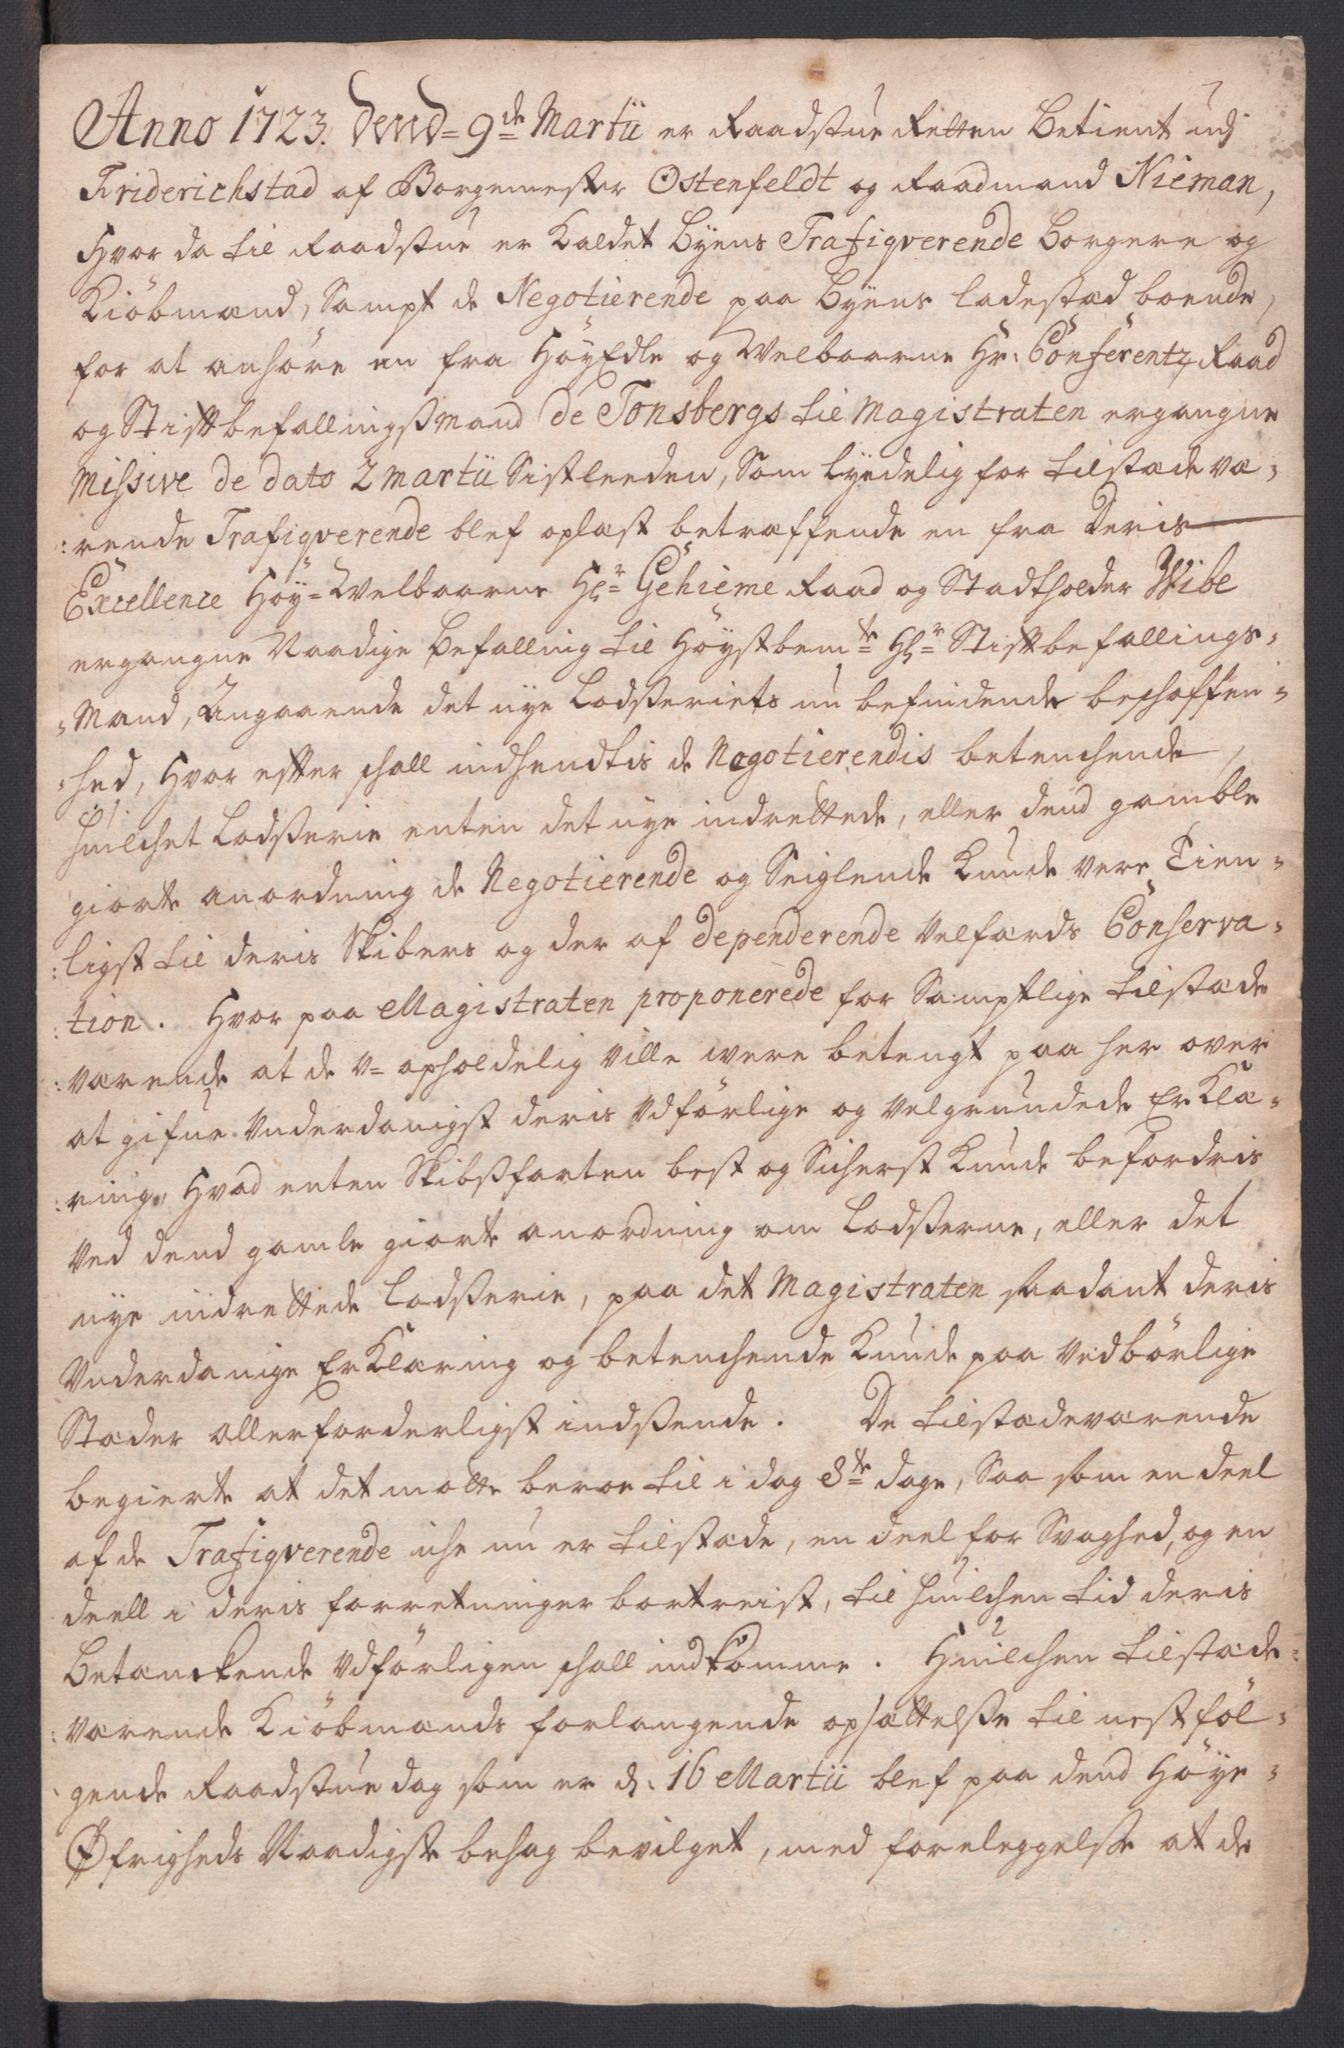 Anno 1723. dend 9de Martii er Raadstue Retten Betient udj
Friderichstad af Borgemester Ostenfeldt og Raadmand Nieman,
Hvor da til Raadstue er Kaldet Byens Trafiqverende Borgere og
Kiöbmænd, Sampt de Negotierende paa Byens ladestæd boende,
for at anhöre en fra HöyEdle og Welbaarne Hr: Conferentz Raad
og Stiftbefallingsmand de Tonsbergs til Magistraten ergangne
Missive de dato 2 martii Sistleeden, Som lydelig for tilstæde væ-
:rende Trafiqverende blef oplæst betræffende en fra Deris
Excellence Höy-Welbaarne Hr Geheime Raad og Stadtholder Wibe
ergangne Naadige Befalling til Höystbemte Hr Stiftbefallings-
-Mand, Angaaende det nye Lodseriets nu befindende beschaffen-
-hed, Hvor efter schall indhendtis de Negotierendis betenchende,
Huilchet Lodserie enten det nye indrettede, eller dend gamble
giorte anordning de Negotierende og Seiglende Kunde vere Tien-
:ligst til deris Skibers og der af dependerende Velfærds Conserva-
:tion. Hvor paa Magistraten proponerede for Samptlige tilstæde
:værende at de v-opholdelig ville were betengt paa her over
at gifue Vnderdanigst deris Vdförlige og Velgrundede Erklæ-
:ring, Hvad enten Skibsfarten best og Sicherst Kunde befordris
Ved dend gamle giorte anordning om Lodserne, eller det
nye indrettede Lodserie, paa det Magistraten saadant deris
Vnderdanige Erklæring og betenchende Kunde paa Vedbörlige
Stæder allerforderligst indsende. De tilstædeværende
begierte at det motte beroe til i dag 8te dage, Saa som en deel
af de Trafiqverende iche nu er tilstæde, en deel for Svaghed, og en
deell i deris forretninger bortreist, til huilchen tid deris
Betænkende Vdförligen schall indkomme. Huilchen tilstæde-
:værende Kiöbmænds forlangende opsættelse til nestföl-
:gende Raadstue dag som er d: 16 Martii blef paa dend Höye-
Öfrigheds Naadigste behag bevilget, med foreleggelse at de